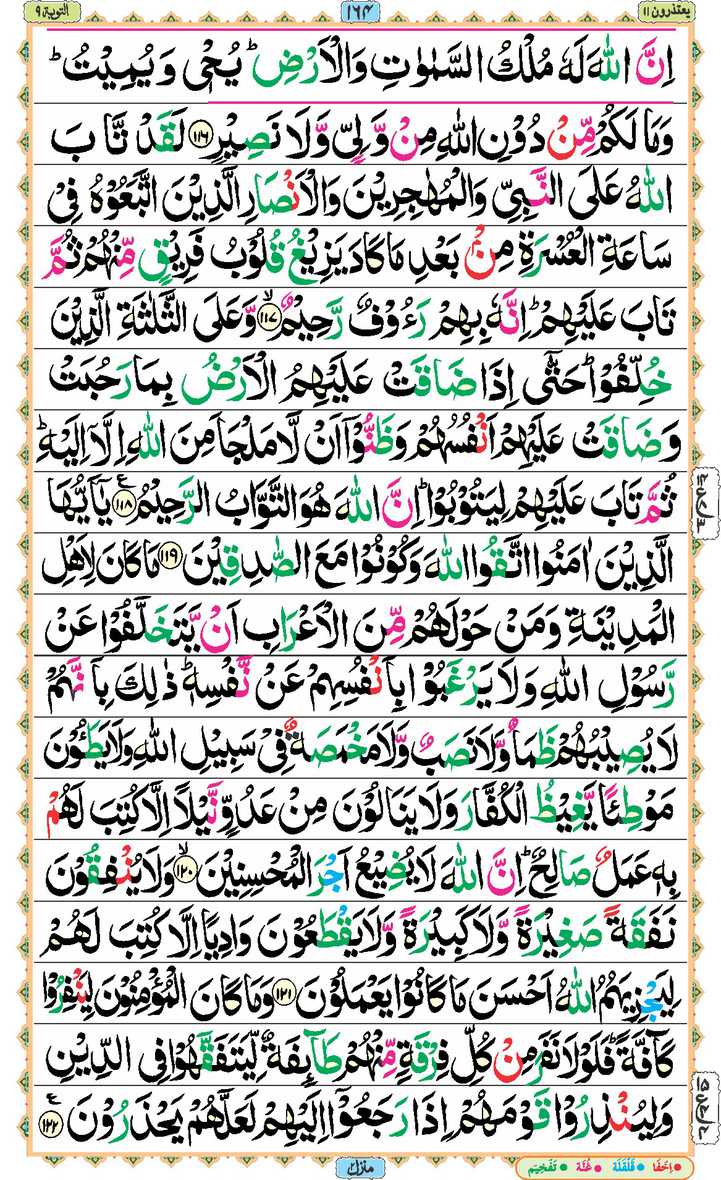 يعتذرون ١١ ١٦٤ التوبة ٩
اِنَّ اللّٰهَ لَهٗ مُلْكُ السَّمٰوٰتِ وَالْاَرْضِ ؕ يُحْیٖ وَ يُمِيْتُ ؕ
وَمَا لَكُمْ مِّنْ دُوْنِ اللّٰهِ مِنْ وَّلِىٍّ وَّلَا نَصِيْرٍ ﴿۱۱۶﴾ لَقَدْ تَّابَ
اللّٰهُ عَلَى النَّبِىِّ وَالْمُهٰجِرِيْنَ وَالْاَنْصَارِ الَّذِيْنَ اتَّبَعُوْهُ فِىْ
سَاعَةِ الْعُسْرَةِ مِنْۢ بَعْدِ مَا كَادَ يَزِيْغُ قُلُوْبُ فَرِيْقٍ مِّنْهُمْ ثُمَّ
تَابَ عَلَيْهِمْ ؕ اِنَّهٗ بِهِمْ رَءُوْفٌ رَّحِيْمٌ ۙ﴿۱۱۷﴾ وَّعَلَى الثَّلٰثَةِ الَّذِيْنَ
خُلِّفُوْا ؕ حَتّٰۤى اِذَا ضَاقَتْ عَلَيْهِمُ الْاَرْضُ بِمَا رَحُبَتْ
وَضَاقَتْ عَلَيْهِمْ اَنْفُسُهُمْ وَظَنُّوْۤا اَنْ لَّا مَلْجَاَ مِنَ اللّٰهِ اِلَّاۤ اِلَيْهِ ؕ
ثُمَّ تَابَ عَلَيْهِمْ لِيَتُوْبُوْا ؕ اِنَّ اللّٰهَ هُوَ التَّوَّابُ الرَّحِيْمُ ﴿۱۱۸﴾ يٰۤاَيُّهَا
الَّذِيْنَ اٰمَنُوا اتَّقُوا اللّٰهَ وَكُوْنُوْا مَعَ الصّٰدِقِيْنَ ﴿۱۱۹﴾ مَا كَانَ لِاَهْلِ
الْمَدِيْنَةِ وَمَنْ حَوْلَهُمْ مِّنَ الْاَعْرَابِ اَنْ يَّتَخَلَّفُوْا عَنْ
رَّسُوْلِ اللّٰهِ وَلَا يَرْغَبُوْا بِاَنْفُسِهِمْ عَنْ نَّفْسِهٖ ؕ ذٰلِكَ بِاَنَّهُمْ
لَا يُصِيْبُهُمْ ظَمَاٌ وَّلَا نَصَبٌ وَّلَا مَخْمَصَةٌ فِىْ سَبِيْلِ اللّٰهِ وَلَا يَطَئُوْنَ
مَوْطِئًا يَّغِيْظُ الْكُفَّارَ وَلَا يَنَالُوْنَ مِنْ عَدُوٍّ نَّيْلًا اِلَّا كُتِبَ لَهُمْ
بِهٖ عَمَلٌ صَالِحٌ ؕ اِنَّ اللّٰهَ لَا يُضِيْعُ اَجْرَ الْمُحْسِنِيْنَ ۙ﴿۱۲۰﴾ وَلَا يُنْفِقُوْنَ
نَفَقَةً صَغِيْرَةً وَّلَا كَبِيْرَةً وَّلَا يَقْطَعُوْنَ وَادِيًا اِلَّا كُتِبَ لَهُمْ
لِيَجْزِيَهُمُ اللّٰهُ اَحْسَنَ مَا كَانُوْا يَعْمَلُوْنَ ﴿۱۲۱﴾ وَمَا كَانَ الْمُؤْمِنُوْنَ لِيَنْفِرُوْا
كَآفَّةً ؕ فَلَوْلَا نَفَرَ مِنْ كُلِّ فِرْقَةٍ مِّنْهُمْ طَآئِفَةٌ لِّيَتَفَقَّهُوْا فِى الدِّيْنِ
وَلِيُنْذِرُوْا قَوْمَهُمْ اِذَا رَجَعُوْۤا اِلَيْهِمْ لَعَلَّهُمْ يَحْذَرُوْنَ ﴿۱۲۲﴾
منزل ٢ • اِخفَا • قَلْقَلَة • غُنَّة • تَفْخِيْم